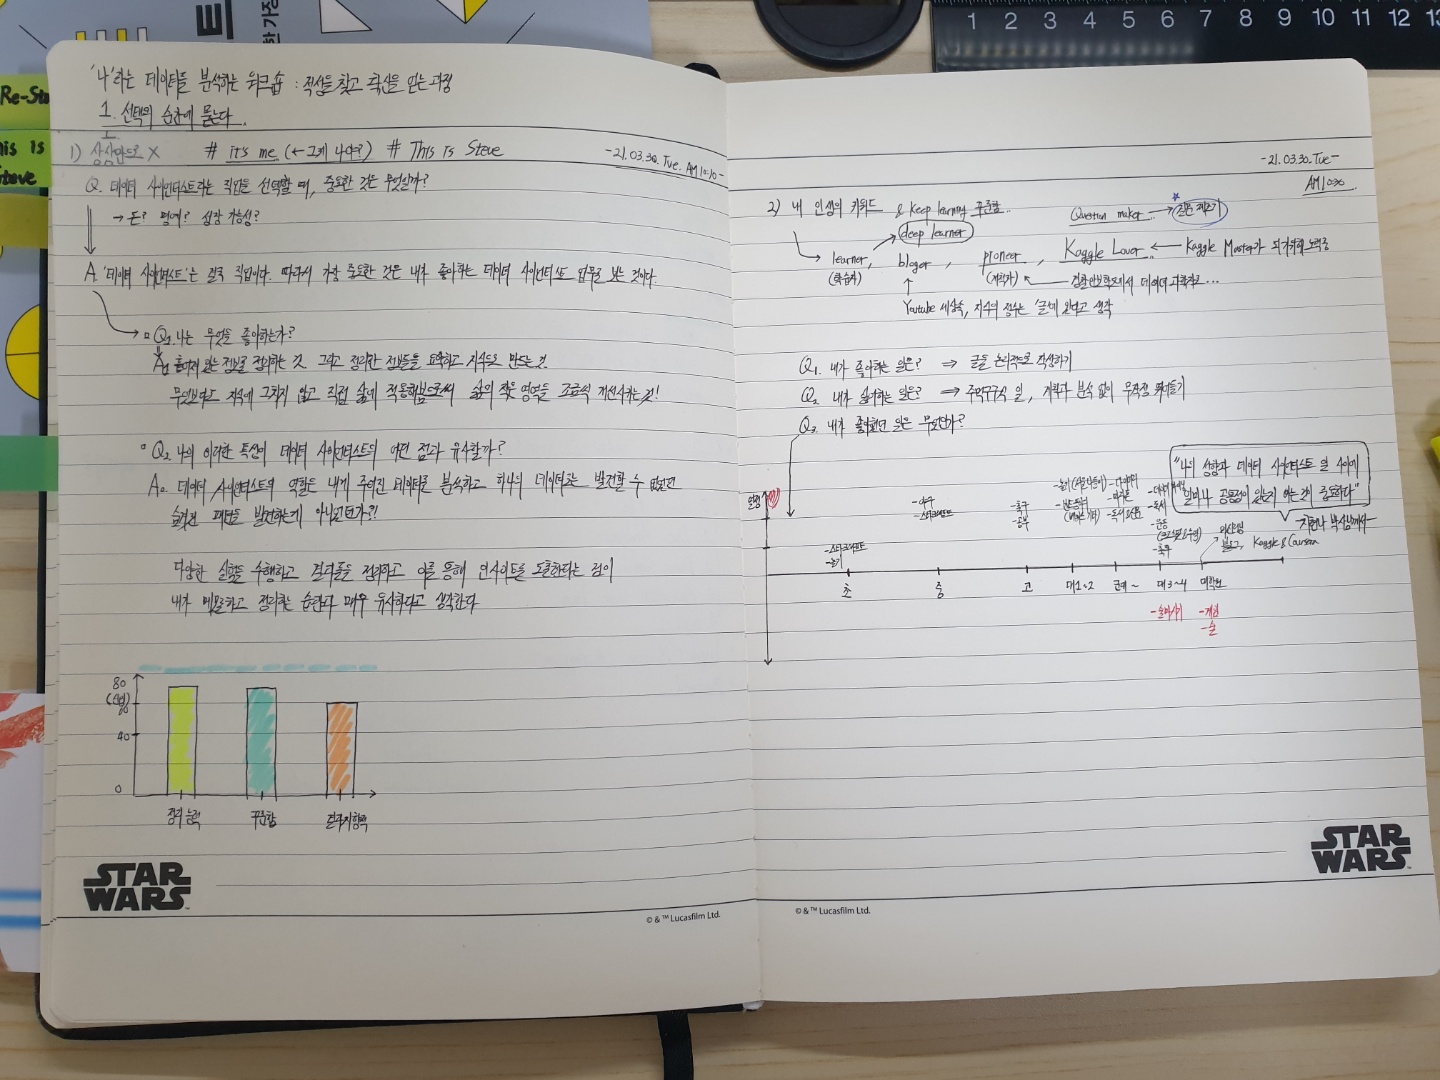 '나'라는 데이터를 분석하는 워크숍 : 적성을 찾고 확신을 얻는 과정
1. 선택의 순간에 묻는다.
1) 상상만으로 X # it's me (← 그게 나야?) # This is Steve -21.03.30. Tue. AM 10:10-
Q. 데이터 사이언티스트라는 직업을 선택할 때, 중요한 것은 무엇일까?
→ 돈? 명예? 성장 가능성?
A. '데이터 사이언티스트'는 결국 직업이다. 따라서 가장 중요한 것은 내가 좋아하는 데이터 사이언티스트 업무를 보는 것이다.
Q1. 나는 무엇을 좋아하는가?
A1. 흩어져 있는 정보를 정리하는 것. 그리고 정리한 정보들을 요약하고 지식으로 만드는 것.
무엇보다도 지식에 그치지 않고 직접 삶에 적용해봄으로써 삶의 작은 영역을 조금씩 개선시키는 것!
Q2. 나의 이러한 특성이 데이터 사이언티스트의 어떤 점과 유사할까?
A2. 데이터 사이언티스트의 역할은 내게 주어진 데이터를 분석하고 하나의 데이터로는 발견할 수 없었던
숨겨진 패턴을 발견하는게 아니었던가?!
다양한 실험을 수행하고 결과물을 정리하고 이를 통해 인사이트를 도출한다는 점이
내가 메모하고 정리하는 습관과 매우 유사하다고 생각한다
80
60
40
0
정리 능력 꾸준함 결과지향력
STAR
WARS
© & ™ Lucasfilm Ltd.
-21.03.30. Tue-
AM 10:30
2) 내 인생의 키워드 & keep learning 꾸준함..
Question maker → 질문 제조기
deep learner
learner, bloger, pioneer, Kaggle Lover ← Kaggle Master가 되기위해 노력중
(학습자) (개척자)
Youtube 세상속, 지식의 정수는 '글'에 있다고 생각
Q1. 내가 좋아하는 일은? ⇒ 글을 논리적으로 작성하기
Q2. 내가 싫어하는 일은? ⇒ 주먹구구식 일, 계획과 분석 없이 무작정 뛰어들기
Q3. 내가 좋아했던 일은 무엇인가?
"나의 성향과 데이터 사이언티스트 일 사이에
얼마나 공통점이 있는지 아는것이 중요하다"
- 야구
- 스타크래프트
- 축구
- 공부
- 독서
- 운동
- 축구
블로그, Kaggle & Coursera
- 스타크래프트
초 중 고 대1~2 군대~ 대3~4 대학원
- 술마시기 - 게임
- 술
STAR
WARS
© & ™ Lucasfilm Ltd.
1 2 3 4 5 6 7 8 9 10 11 12
Re-St
his is
Steve